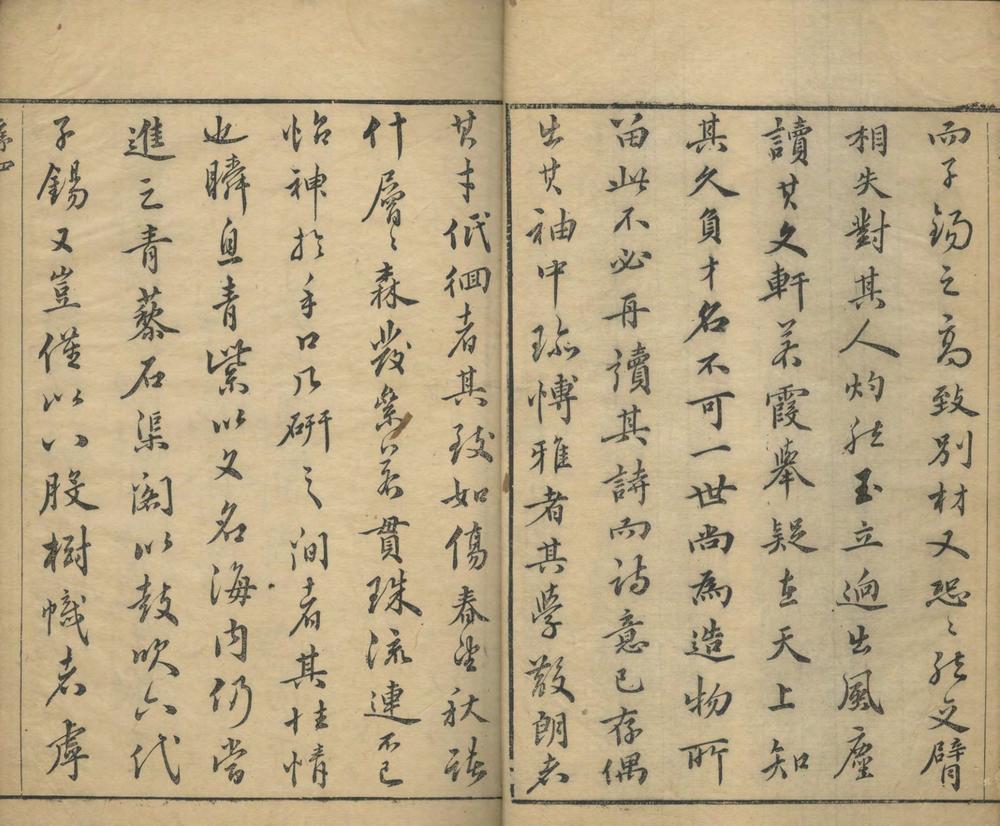 而子錫之高致別材又恐〻然交臂
相失對其人灼然玉立迥出風塵
讀其文軒若霞舉疑在天上知
其久負才名不可一世尚為造物所
留此不必再讀其詩而詩意已存偶
出其袖中瑜愽雅者其學散朗者
其才低徊者其致如傷春望秋諸
什層〻森發纍〻若貫珠流連不已
怡神於手口乃研之間者其性情
也瞬息青紫以文名海內仍當
進之青藜石渠閣以鼓吹六代
子錫又豈僅以八股樹幟者虖
序四